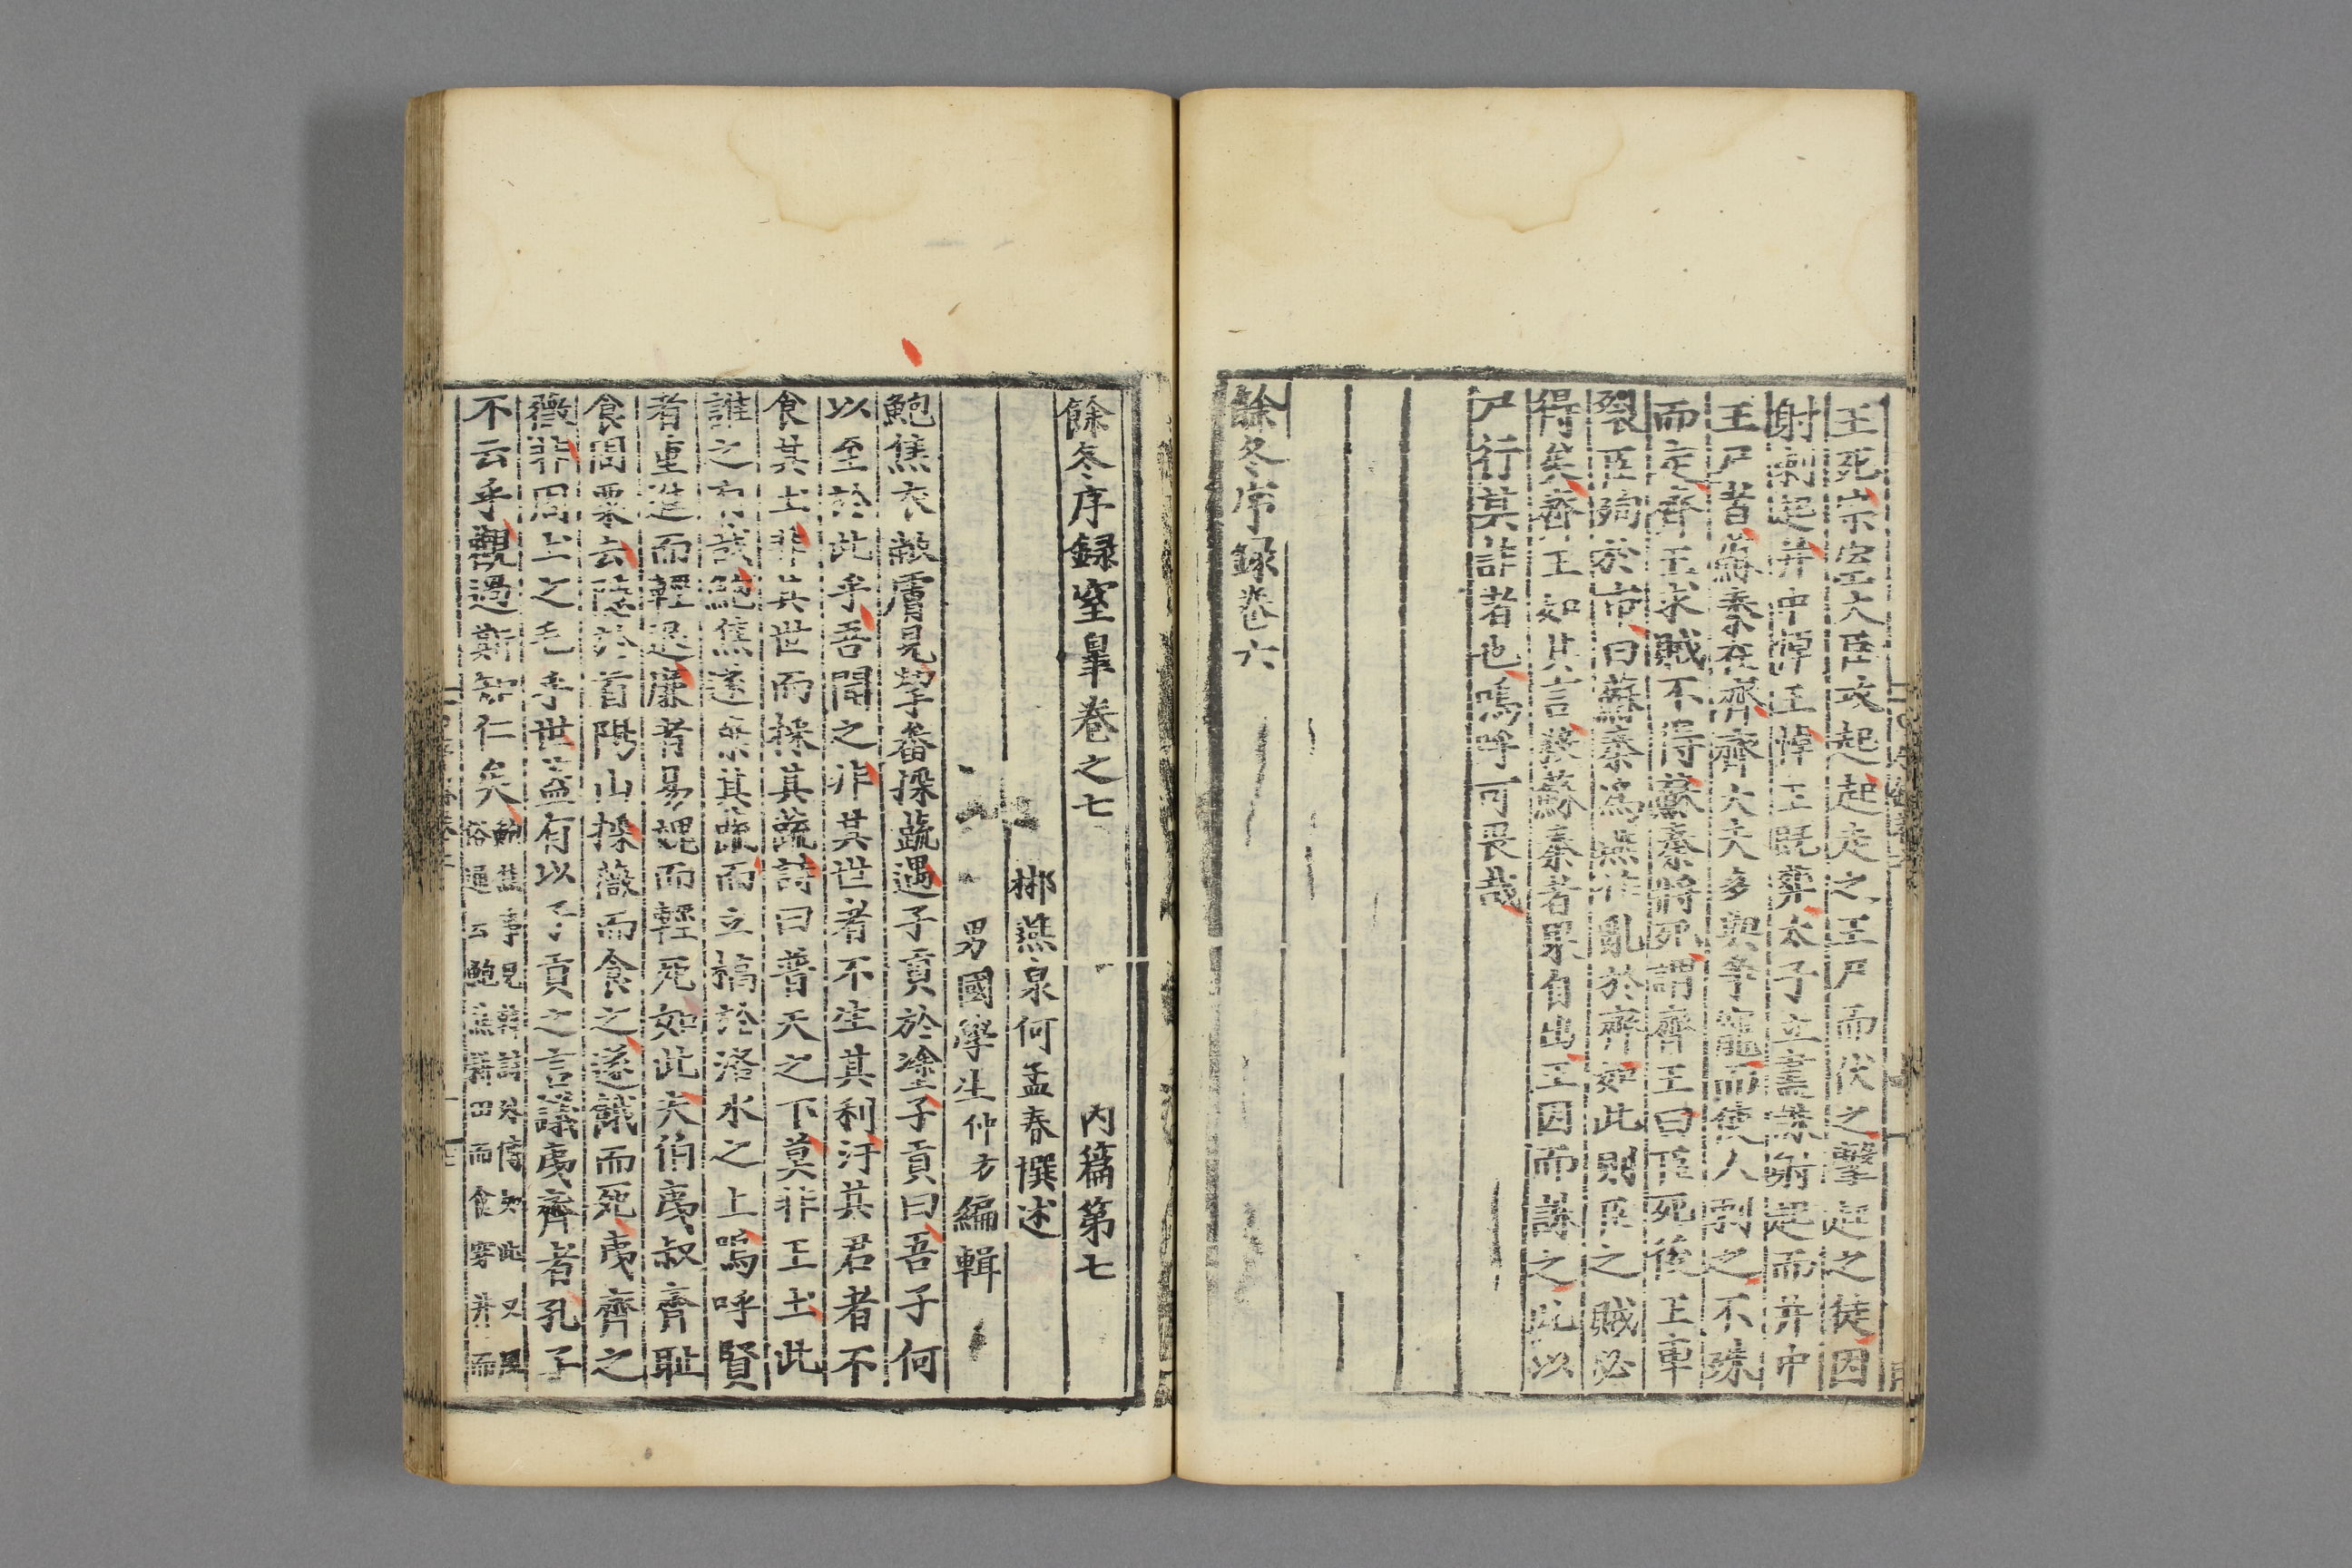 王死宗室大臣攻起起走之王尸而伏之擊起之徒因
射刺起并中悼王悼王既葬太子立盡誅射起而并中
王尸者蘇秦在齊齊大夫多與爭寵而使人刺之不殊
而走齊王求賊不得蘇秦將死謂齊王曰臣死後王車
裂臣殉於市曰蘇秦為燕作亂於齊如此則臣之賊必
得矣齊王如其言殺蘇秦者果自出王因而誅之此以
尸行其詐者也嗚呼可畏哉
餘冬序録卷六
餘冬序録窒皇卷之七 內篇第七
郴燕泉何孟春撰述
男國學生仲方編輯
鮑焦衣敝膚見挈畚採蔬遇子貢於塗子貢曰吾子何
以至於此乎吾聞之非其世者不生其利汙其君者不
食其土非其世而採其蔬詩曰普天之下莫非王土此
誰之有哉鮑焦遂棄其蔬而立槁於洛水之上嗚呼賢
者重進而輕退廉者易媿而輕死如此夫伯夷叔齊恥
食周粟云隱於首陽山採薇而食之遂餓而死夷齊之
薇非周土之毛乎世盖有以子貢之言議夷齊者孔子
不云乎觀過斯知仁矣鮑焦事見韓詩外傳如此又風
俗通云鮑焦耕田而食穿井而